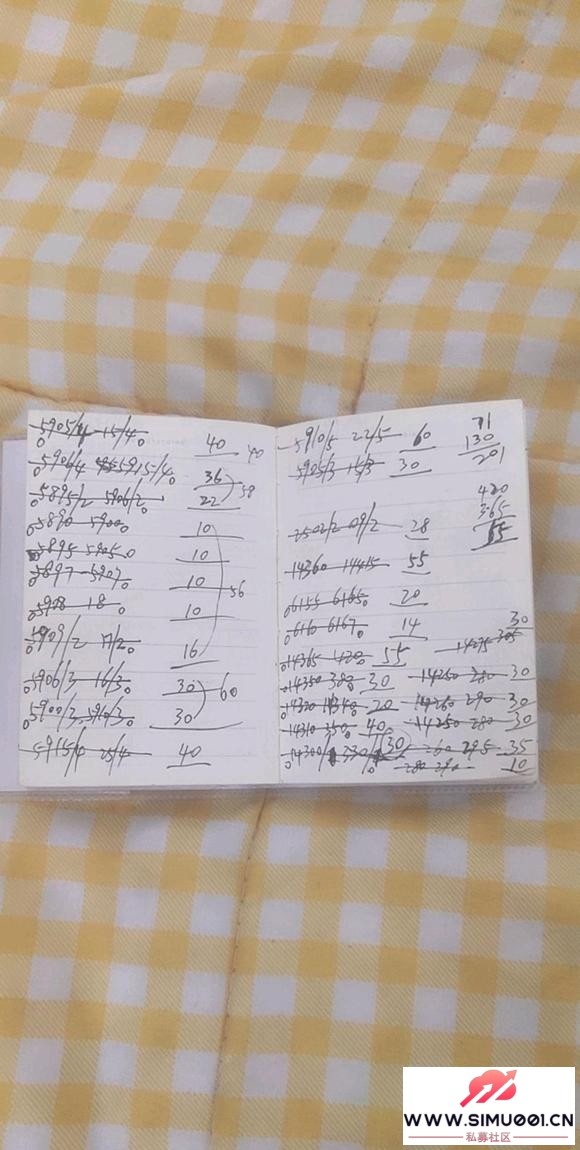 5905/4 15/4 40 40
5906/4 5915/4 36
58
5895/2 5906/2 22
5890 5900 10
5895 5905 10
5897 5907 10
56
5908 18 10
5909/2 17/2 16
5906/3 16/3 30
60
5900/3 5910/3 30
5915/4 25/4 40
5910/5 22/5 60
5905/3 15/3 30
71
130
201
420
365
55
2502/2 09/2 28
14360 14415 55
6155 6165 20
6160 6167 14
14365 1420 55
14275 305 30
14350 380 30
14250 280 30
14320 14340 20
14260 290 30
14310 350 40
14250 280 30
14300 330 30
260 295 35
280 290 10
WWW.SIMU001.CN
私募社区